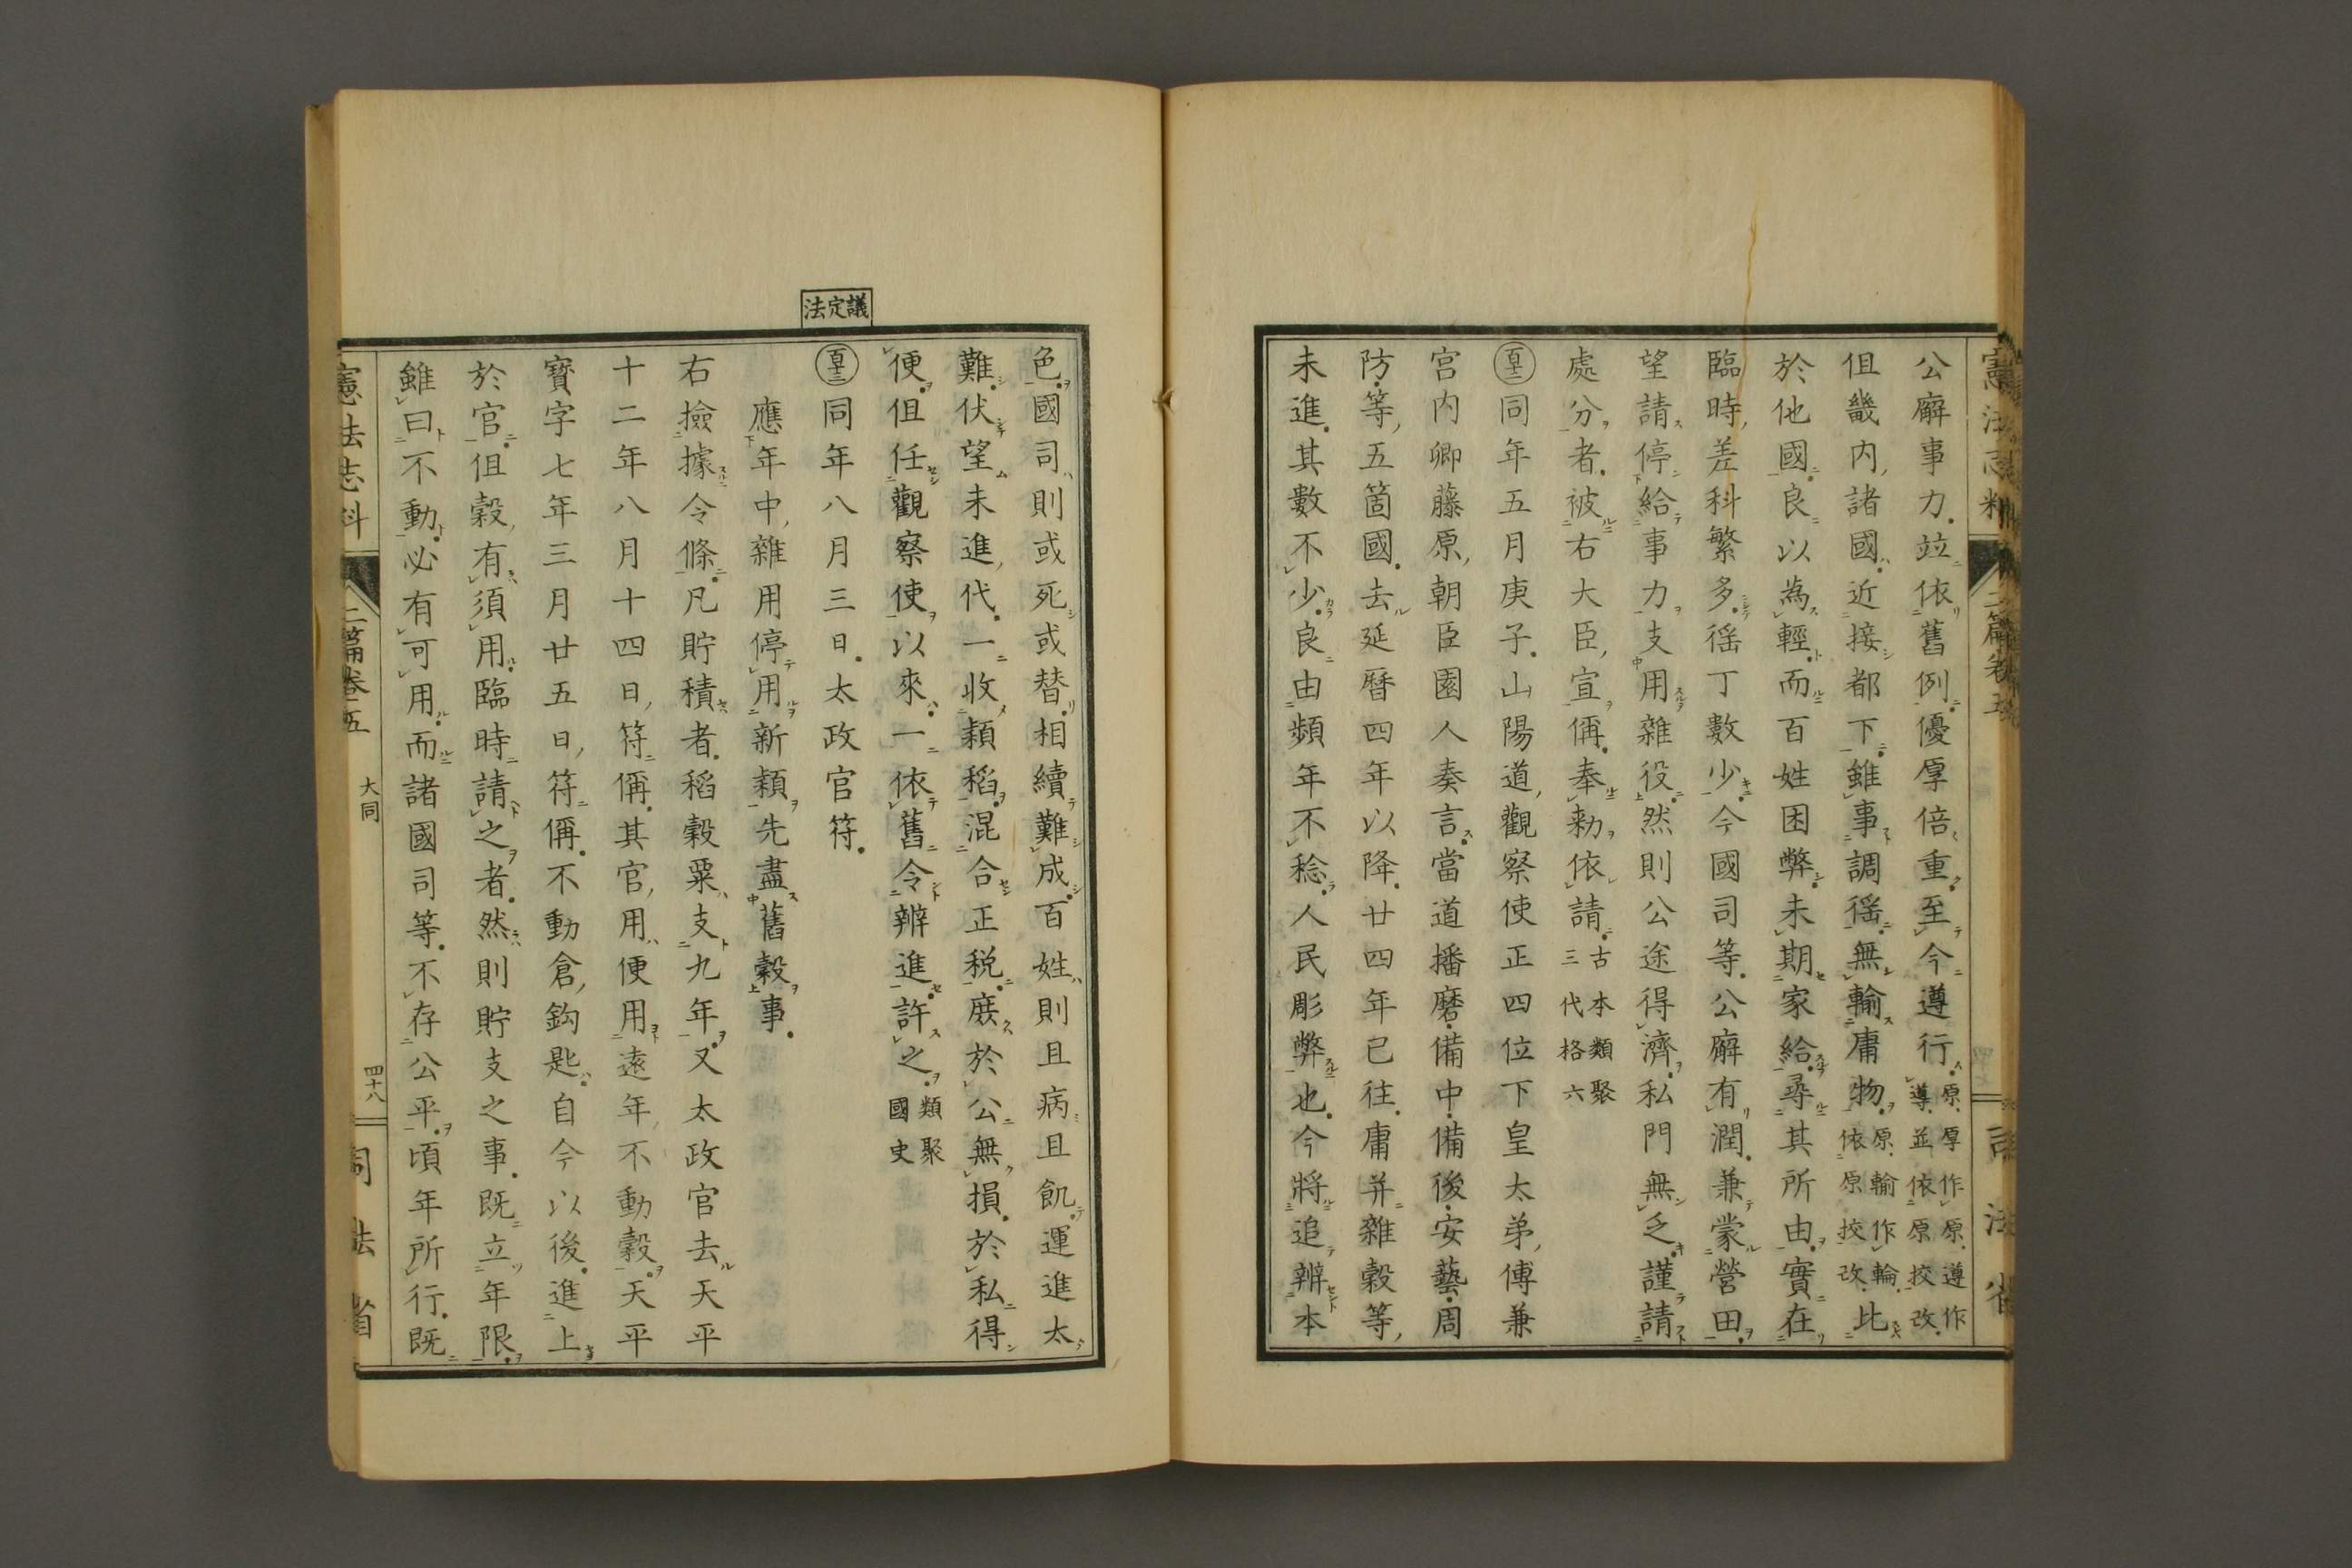 公廨事力。竝依舊例。優厚倍重。至今遵行。原厚作原遵作遵並依原挍改
但畿内諸國。近接都下。雖事調徭。無輸庸物。原輸作輪依原挍改比
於他國。良以為輕。而百姓困弊。未期家給。尋其所由。實在
臨時差科繁多。徭丁數少。今國司等。公廨有潤。兼蒙營田。
望請停給事力支用雜役。然則公途得濟。私門無乏。謹請
處分者。被右大臣宣偁。奉勅依請。古本類聚三代格六
同年五月庚子。山陽道觀察使正四位下皇太弟傅兼
宮内卿藤原朝臣園人奏言。當道播磨備中備後安藝周
防等五箇國。去延曆四年以降。廿四年已往。庸并雜穀等
未進。其數不少。良由頻年不稔。人民彫弊也。今將追辨本
色。國司則或死或替。相續難成。百姓則且病且飢。運進太
難。伏望未進代。一收穎稻。混合正税。庶於公無損。於私得
便。但任觀察使以來。一依舊令辨進。許之。類聚國史
議定法
同年八月三日。太政官符。
應年中雜用停用新穎先盡舊穀事。
右撿據令條。凡貯積者。稻穀粟支九年。又太政官去天平
十二年八月十四日符偁。其官用便用遠年不動穀。天平
寳字七年三月廿五日符偁。不動倉鈎匙。自今以後。進上
於官。但穀有須用。臨時請之者。然則貯支之事。既立年限。
雖曰不動。必有可用。而諸國司等。不存公平。頃年所行。既
憲法志料
二篇卷五
大同
四十八
司法省